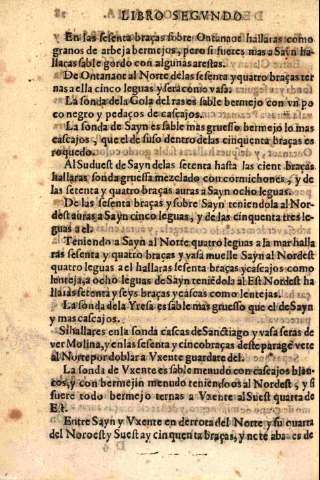 LIBRO SEGVNDO
En las sesenta braças sobre Ontanaot hallaras como
granos de arbeja bermejos, pero si fueres mas a Sayn ha
llaras sable gordo con algunas arestas.
De Ontanaot al Norte de las sesenta y quatro braças ter
nas a ella cinco leguas y sera como vasa.
La sonda de la Gola del ras es sable bermejo con vn po
co negro y pedaços de cascajos.
La sonda de Sayn es sable mas gruesso bermejo lo mas
cascajos, que el de suso dentro de las cinquenta braças es
roquedo.
Al Suduest de Sayn de las setenta hasta las cient braças
hallaras sonda gruessa mezclado con cornichones, y de
las setenta y quatro braças auras a Sayn ocho leguas.
De las sesenta braças y sobre Sayn teniendola al Nor-
dest auras a Sayn cinco leguas, y de las cinquenta tres le-
guas a el.
Teniendo a Sayn al Norte quatro leguas a la mar halla
ras sesenta y quatro braças y vasa muelle Sayn al Nordest
quatro leguas a el hallaras sesenta braças y cascajos como
lenteja, a ocho leguas de Sayn teniēdola al Est Nordest ha
llaras setenta y seys braças y cascas como lentejas.
La sonda de la Yresa es sable mas gruesso que el de Sayn
y mas cascajos.
Si hallares en la sonda cascas de Sanctiago y vasa seras de
ver Molina, y en las sesenta y cinco braças deste parage vete
al Norte por doblar a Vxente guardate del.
La sonda de Vxente es sable menudo con cascajos blān
cos, y con bermejin menudo teniendo os al Nordest, y si
fuere todo bermejo ternas a Vxente al Suest quarta de
Est.
Entre Sayn y Vxente en derrota del Norte y su quarta
del Noroest y Suest ay cinquenta braças, y no te abaxes de